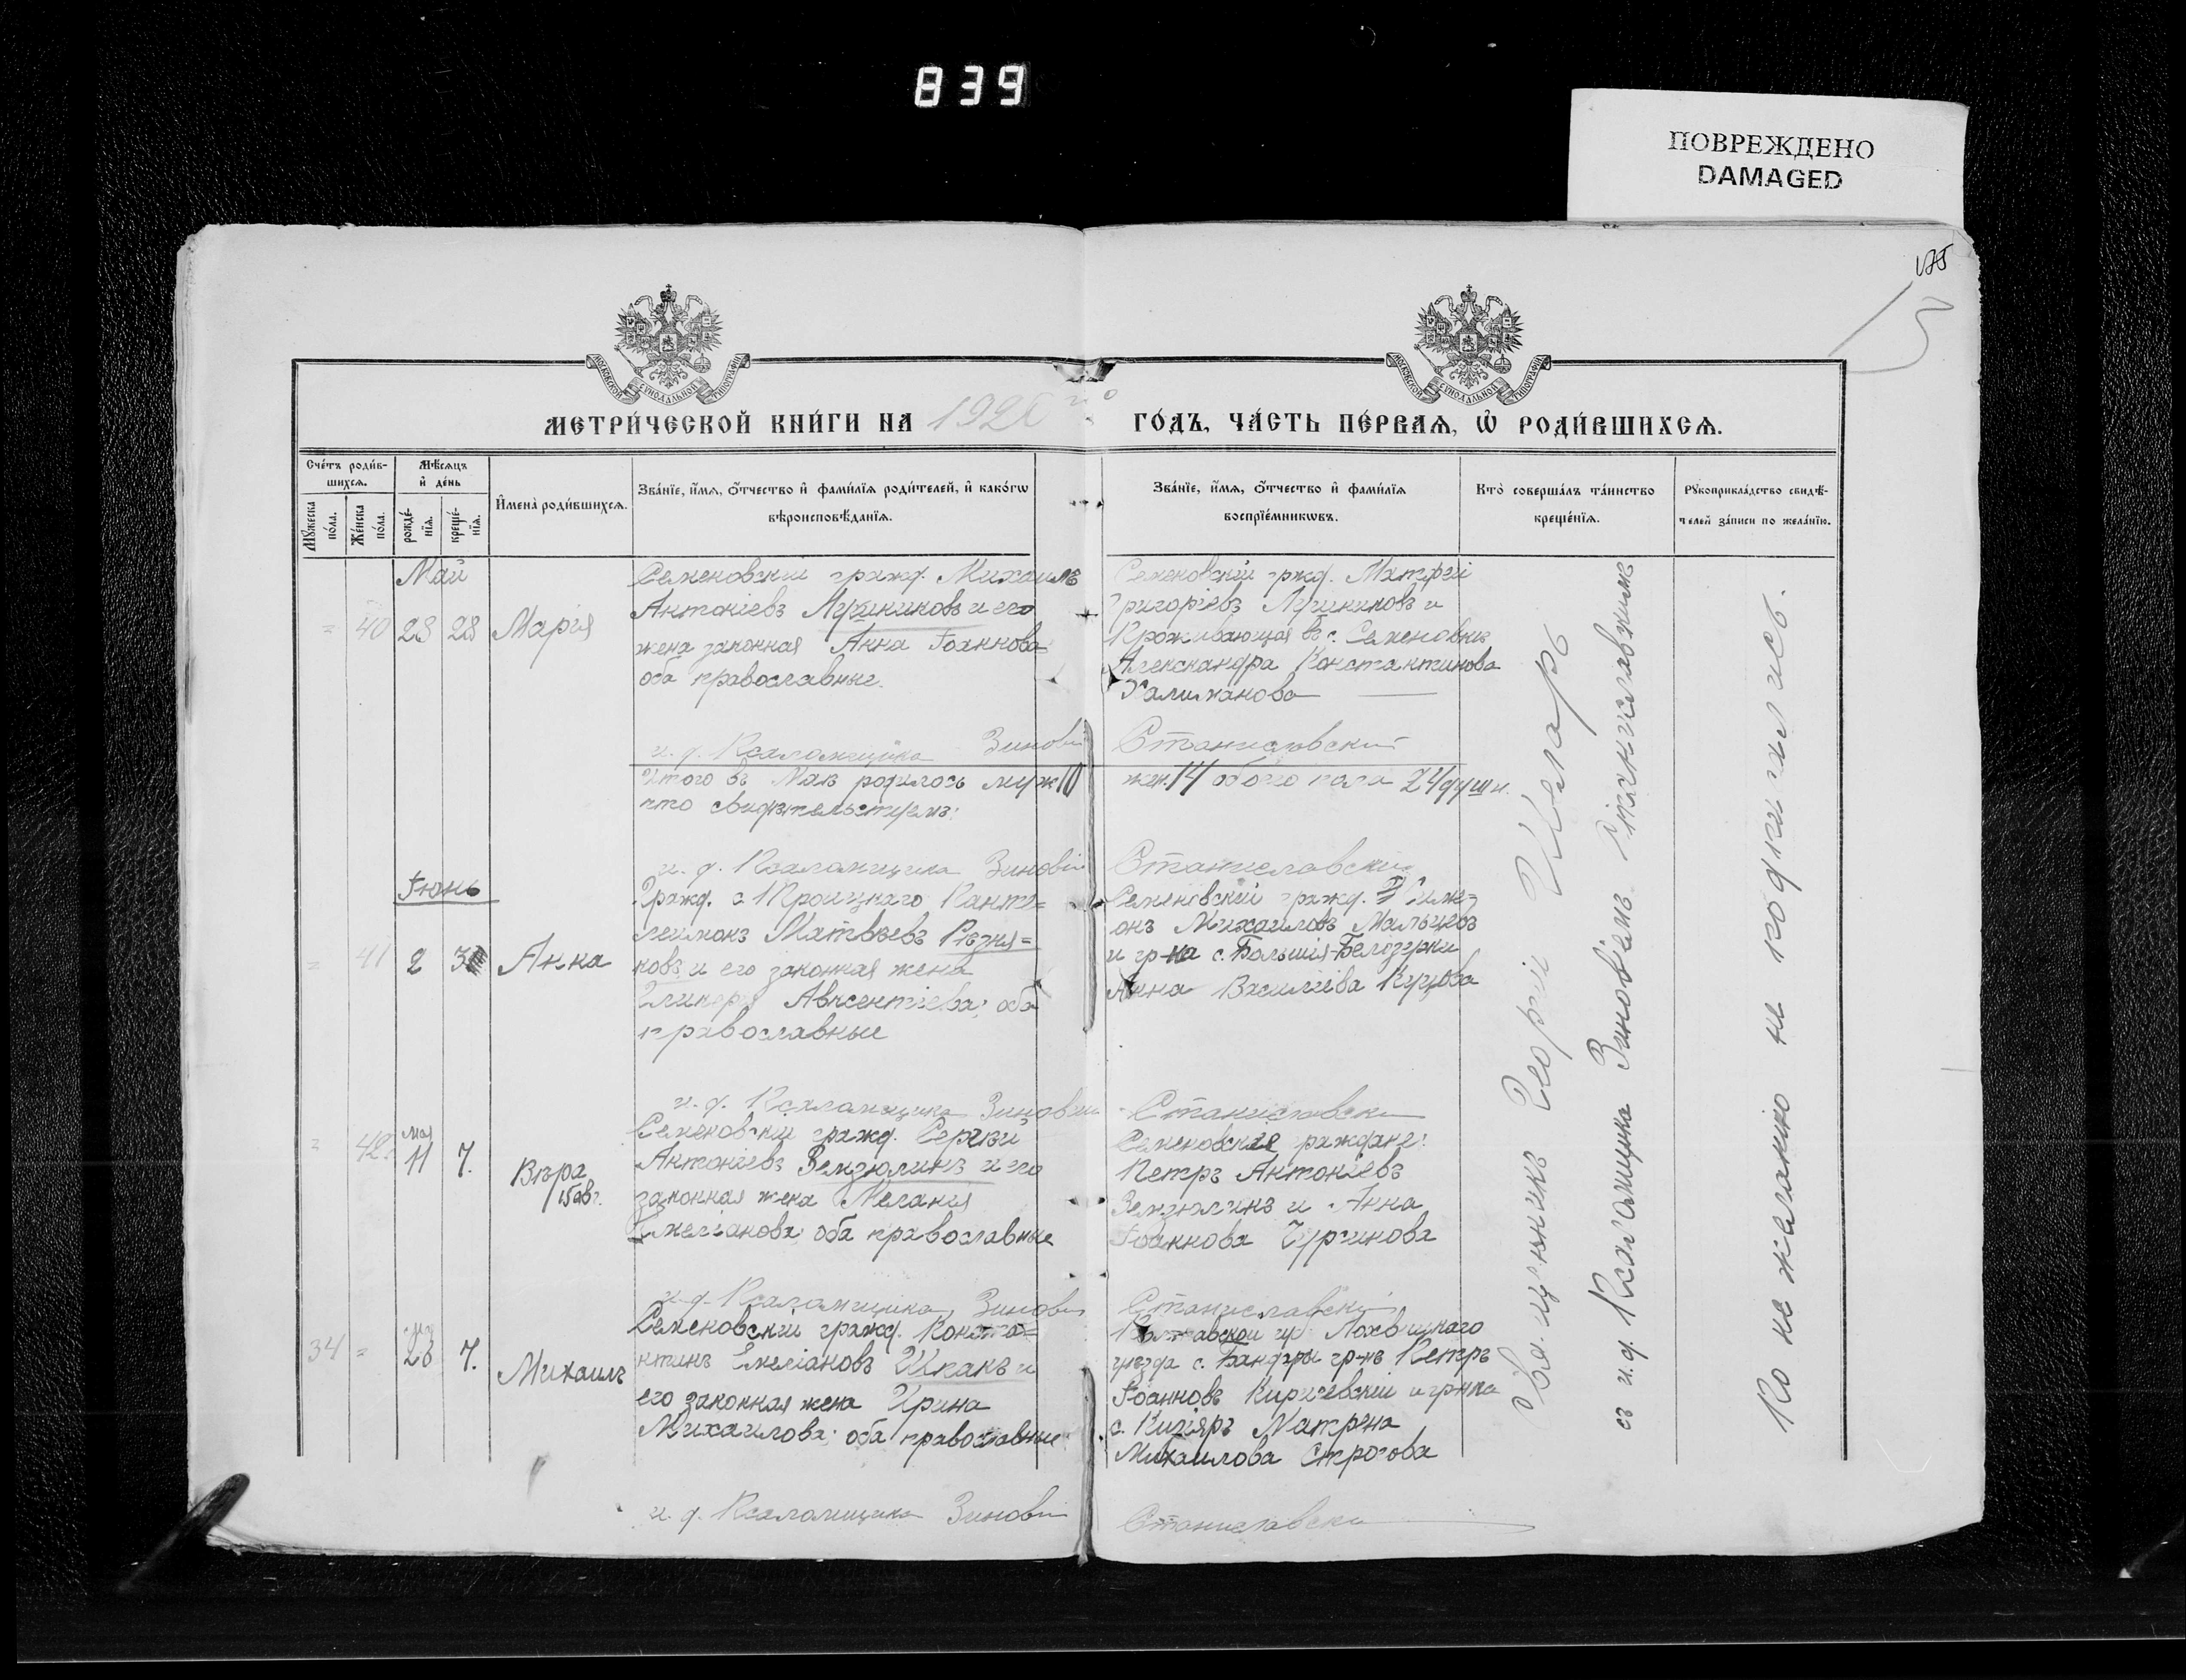 839
ПОВРЕЖДЕНО
DAMAGED
175
МОСКОВСКОЙ СѴНОДАЛЬНОЙ ТИПОГРАФІИ
МОСКОВСКОЙ СѴНОДАЛЬНОЙ ТИПОГРАФІИ
МЕТРИ́ЧЕСКОЙ КНИ́ГИ НА 192 го ГО́ДЪ, ЧА́СТЬ ПЕ́РВАЯ, Ѡ҆ РОДИ́ВШИХСЯ.
Сче́тъ роди́в-
шихся.
Мꙋ́жеска по́ла.
Же́нска по́ла.
Мѣ́сяцъ
и҆ де́нь
рожде́-нїя.
креще́-нїя.
И҆мена̀ роди́вшихся.
Зва́нїе, и҆́мя, ѻ҆́тчество и҆ фами́лїя роди́телей, и҆ како́гѡ
вѣроисповѣ́данїя.
Зва́нїе, и҆́мя, ѻ҆́тчество и҆ фами́лїя
воспрїе́мникѡвъ.
Кто̀ соверша́лъ та́инство
креще́нїя.
Рꙋкоприкла́дство свидѣ́-
телей за́писи по жела́нїю.
Май
= 40 28 28 Марія
Семеновскій гражд. Михаилъ
Антоніевъ Лушниковъ и его
жена законная Анна Іоаннова
оба православные.
Семеновскій гржд. Матфей
Григоріевъ Лушниковъ и
Проживающая въ с. Семеновкѣ
Александра Константинова
Халиманова
и. д. Псаломщика Зиновій Станиславскій
Итого въ Маѣ родилось муж 10 жен. 14 обоего пола 24 души.
что свидѣтельствуемъ:
и. д. Псаломщика Зиновій Станиславскій
Іюнь
= 41 2 3 Анна
Гражд. с Троицкаго Панте=
леимонъ Матвѣевъ Рѣзни=
ковъ и его законная жена
Гликерія Авксентіева; оба
православные
Семеновскій гражд. Симе-
онъ Михаиловъ Мальцевъ
и гр-на с. Большія-Белозерки
Анна Василіева Куцова
и. д. Псаломщика Зиновій Станиславскій
= 42 мая 11 7. Вѣра
Семеновскій гражд. Сергѣй
Антоніевъ Земзюлинъ и его
законная жена Меланія
Емеліанова; оба православные
Семеновскіе граждане:
Петръ Антоніевъ
Земзюлинъ и Анна
Іоаннова Чурсинова
и. д. Псаломщика Зиновій Станиславскій
34 = 28 7. Михаилъ
Семеновскій гражд. Конста=
нтинъ Емеліановъ Шпакъ и
его законная жена Ирина
Михаилова; оба православные
Полтавской губ. Лохвицкаго
уѣзда с. Бандуры гр-нъ Петръ
Іоанновъ Киричевскій и гр-нка
с. Кизіяръ Матрена
Михаилова Строгова
и. д. Псаломщика Зиновій Станиславскій
Священникъ Георгій Шкляръ
съ и. д. Псаломщика Зиновіемъ Станиславскимъ
По не желанію не подписались.